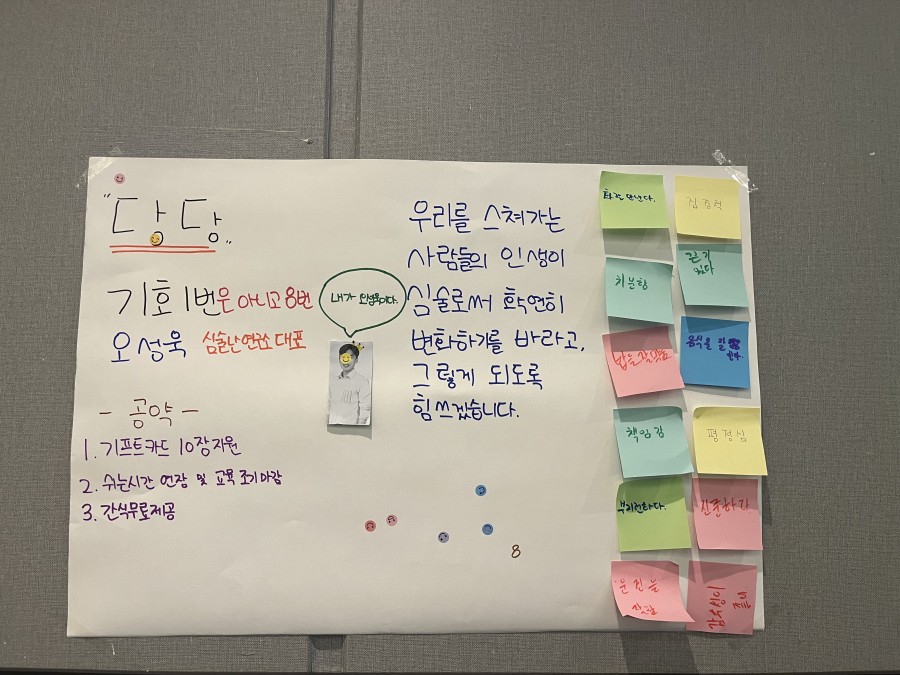 "당당"
기호 1번은 아니고 8번
오성욱 심술난 연소 대표
- 공약 -
1. 기프트카드 10장 지원
2. 쉬는시간 연장 및 교육 조기마감
3. 간식무료제공
내가 오성욱이다.
우리를 스쳐가는
사람들의 인생이
심술로써 확연히
변화하기를 바라고,
그렇게 되도록
힘쓰겠습니다.
8
끈기
있다
치분함
음식을 잘
책임감
평정심
부지런하다.
운전을
잘함
감수성이